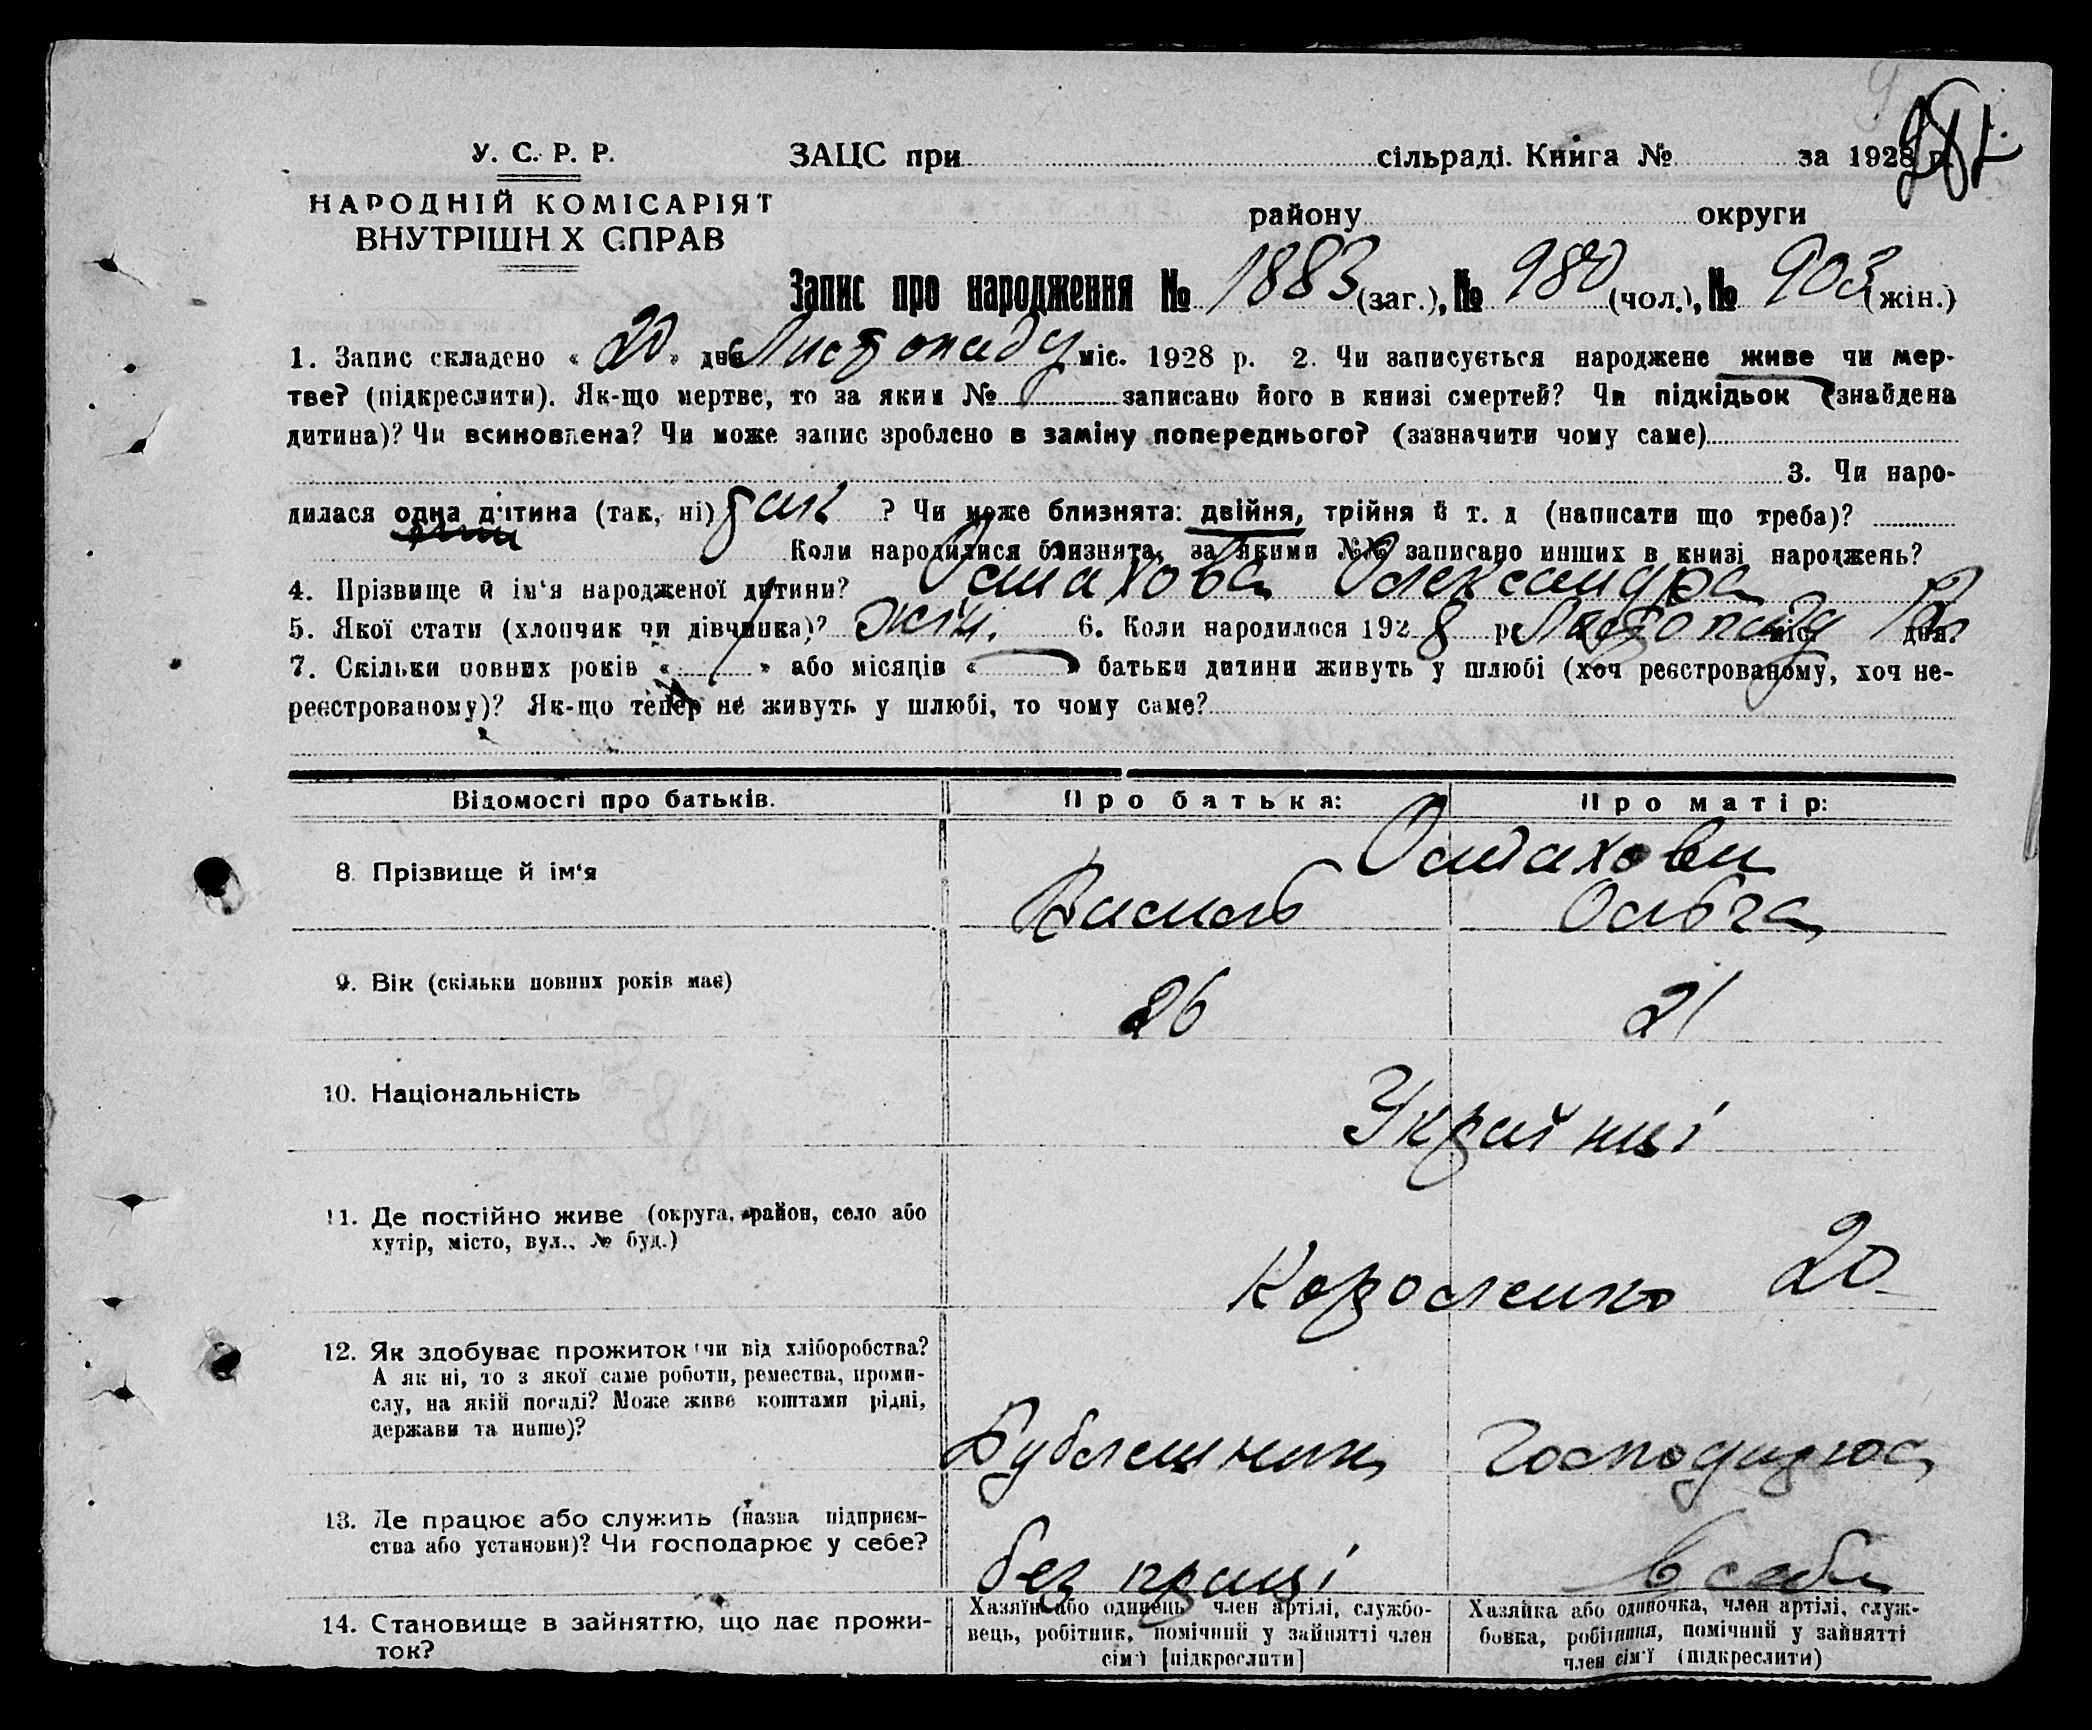 У. С. Р. Р.
НАРОДНІЙ КОМІСАРІЯТ
ВНУТРІШН Х СПРАВ
ЗАЦС при сільраді. Книга № за 1928 р.
району округи
Запис про народження № 1883 (заг.), № 980 (чол.), № 903 (жін.)
1. Запис складено « 20 » дня Листопаду міс. 1928 р. 2. Чи записується народжене живе чи мер-
тве? (підкреслити). Як-що мертве, то за яким № записано його в книзі смертей? Чи підкідьок (знайдена
дитина)? Чи всиновлена? Чи може запис зроблено в заміну попереднього? (зазначити чому саме)
3. Чи наро-
дилася одна дитина (так, ні) так ? Чи може близнята: двійня, трійня й т. д (написати що треба)?
Коли народилися близнята, за якими №№ записано инших в книзі народжень?
4. Прізвище й ім‘я народженої дитини? Остахова Олександра
5. Якої стати (хлопчик чи дівчинка)? жін. 6. Коли народилося 1928 р. Листопаду міс. дня.
7. Скільки повних років « » або місяців « » батьки дитини живуть у шлюбі (хоч реєстрованому, хоч не-
реєстрованому)? Як-що тепер не живуть у шлюбі, то чому саме?
Відомості про батьків. Про батька: Про матір:
Остахови
8. Прізвище й ім‘я Василь Ольга
9. Вік (скільки повних років має) 26 21
10. Національність Українці
11. Де постійно живе (округа, район, село або
хутір, місто, вул., № буд.)
Короленко 20
12. Як здобуває прожиток чи від хліборобства?
А як ні, то з якої саме роботи, ремества, проми-
слу, на якій посаді? Може живе коштами рідні,
держави та инше)?
Бублешник Господарює
13. Де працює або служить (назва підприєм-
ства або установи)? Чи господарює у себе?
без праці в себе
14. Становище в зайняттю, що дає прожи-
ток?
Хазяїн або одинець член артілі, службо-
вець, робітник, помічний у зайнятті член
сім'ї [підкреслити]
Хазяйка або одиночка, член артілі, служ-
бовка, робітниця, помічний у зайнятті
член сім'ї (підкреслити)